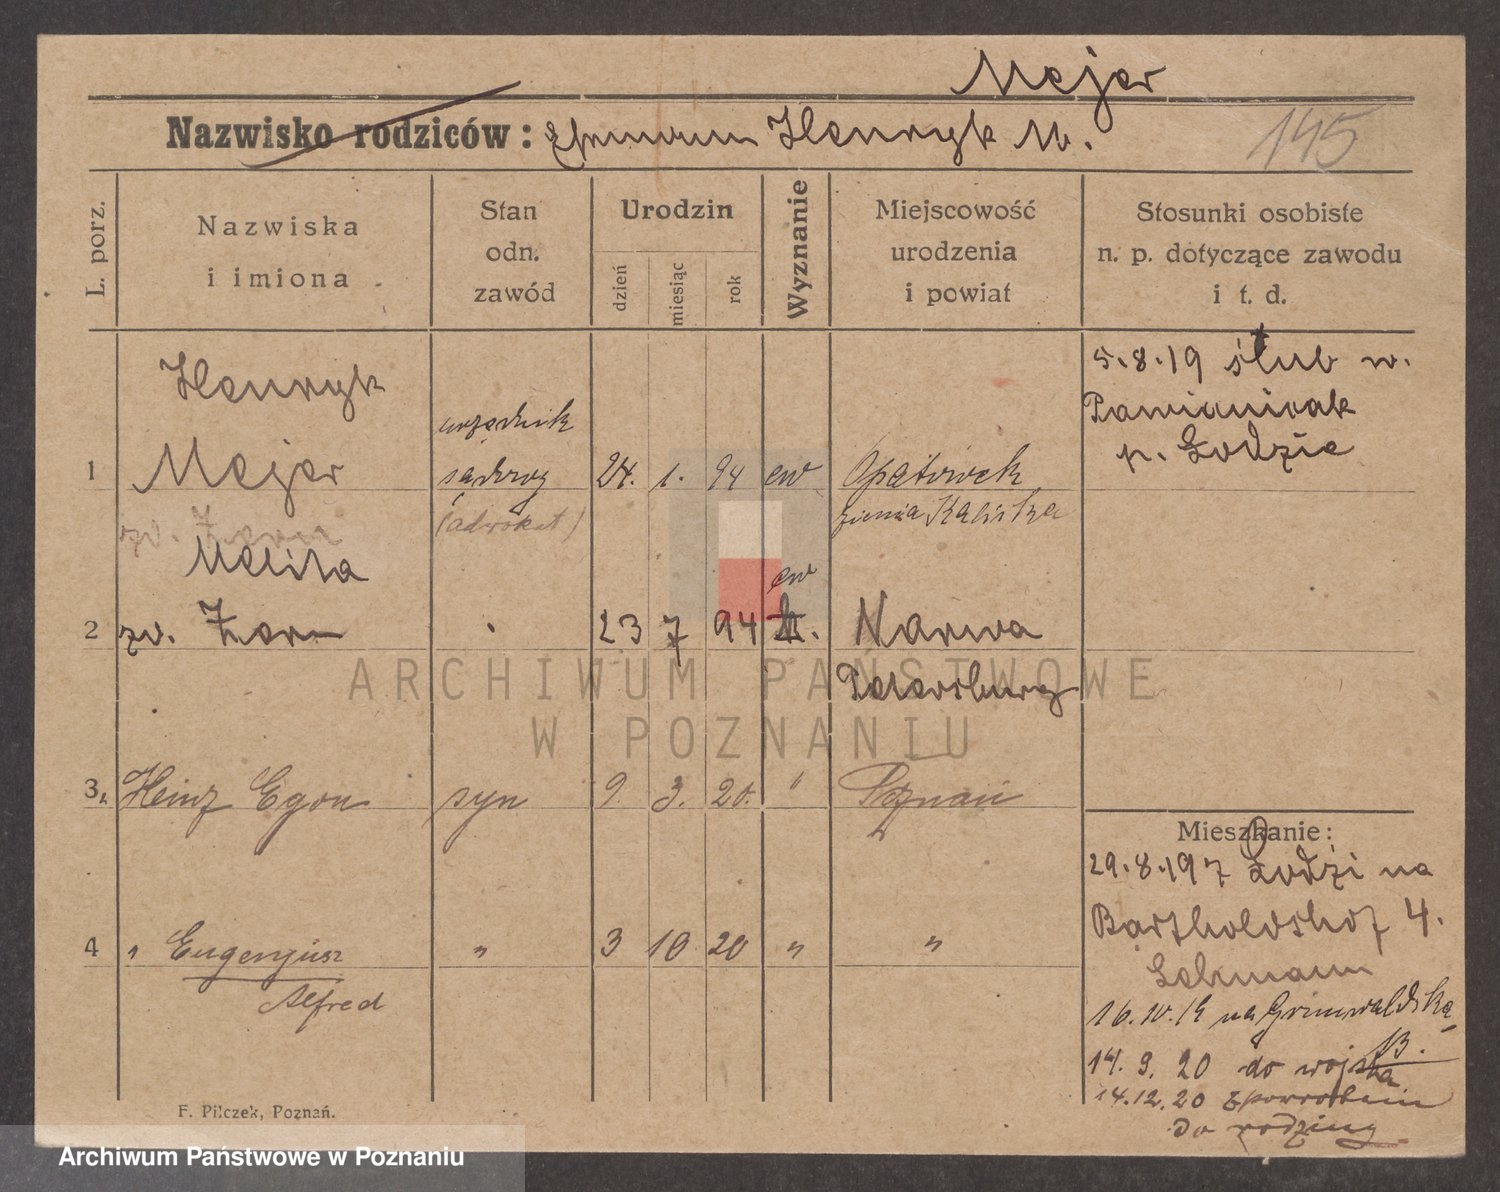 Mejer
Nazwisko rodziców: Henryk M.
145
L. porz.
Nazwiska
i imiona
Stan
odn.
zawód
Urodzin
dzień
miesiąc
rok
Wyznanie
Miejscowość
urodzenia
i powiat
Stosunki osobiste
n. p. dotyczące zawodu
i t. d.
5.8.19 ślub w.
Pawianicak
p. Łodzie
Henryk
urzędnik
1 Mejer sądowy 24. 1. 94 ew Opatówek
(adwokat) ziemia Kaliska
zd. Zorn
Melita
ew
2 zd. Zorn 23 7 94 Narwa
Petersburg
3. Heinz Egon syn 9. 3. 20. " Poznań
Mieszkanie:
29.8.19 z Łodzi na
Bartholdshof 4.
Lehmann
4 " Eugenjusz " 3 10 20 " "
Alfred
16.10.19 na Grunwaldską
13.
14. 9. 20 do wojska
14.12.20 z powrotem
do rodziny
F. Pilczek, Poznań.
ARCHIWUM PAŃSTWOWE
W POZNANIU
Archiwum Państwowe w Poznaniu